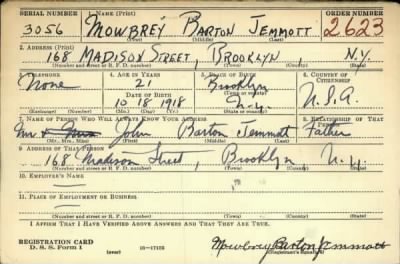 SERIAL NUMBER 1. NAME (Print) ORDER NUMBER
3056 MOWBREY BARTON JEMMOTT 2623
(First) (Middle) (Last)
2. ADDRESS (Print)
168 MADISON STREET, BROOKLYN N.Y.
(Number and street or R. F. D. number) (Town) (County) (State)
3. TELEPHONE 4. AGE IN YEARS 5. PLACE OF BIRTH 6. COUNTRY OF CITIZENSHIP
None 21 Brooklyn
DATE OF BIRTH (Town or county)
10 18 1918 N.Y. U.S.A.
(Exchange) (Number) (Mo.) (Day) (Yr.) (State or country)
7. NAME OF PERSON WHO WILL ALWAYS KNOW YOUR ADDRESS 8. RELATIONSHIP OF THAT PERSON
Mr John Barton Jemmott Father
(Mr., Mrs., Miss) (First) (Middle) (Last)
9. ADDRESS OF THAT PERSON
168 Madison Street, Brooklyn N.Y.
(Number and street or R. F. D. number) (Town) (County) (State)
10. EMPLOYER'S NAME
—
11. PLACE OF EMPLOYMENT OR BUSINESS
—
(Number and street or R. F. D. number) (Town) (County) (State)
I AFFIRM THAT I HAVE VERIFIED ABOVE ANSWERS AND THAT THEY ARE TRUE.
REGISTRATION CARD
D. S. S. Form 1 (over) 16—17105 Mowbrey Barton Jemmott
(Registrant's signature)